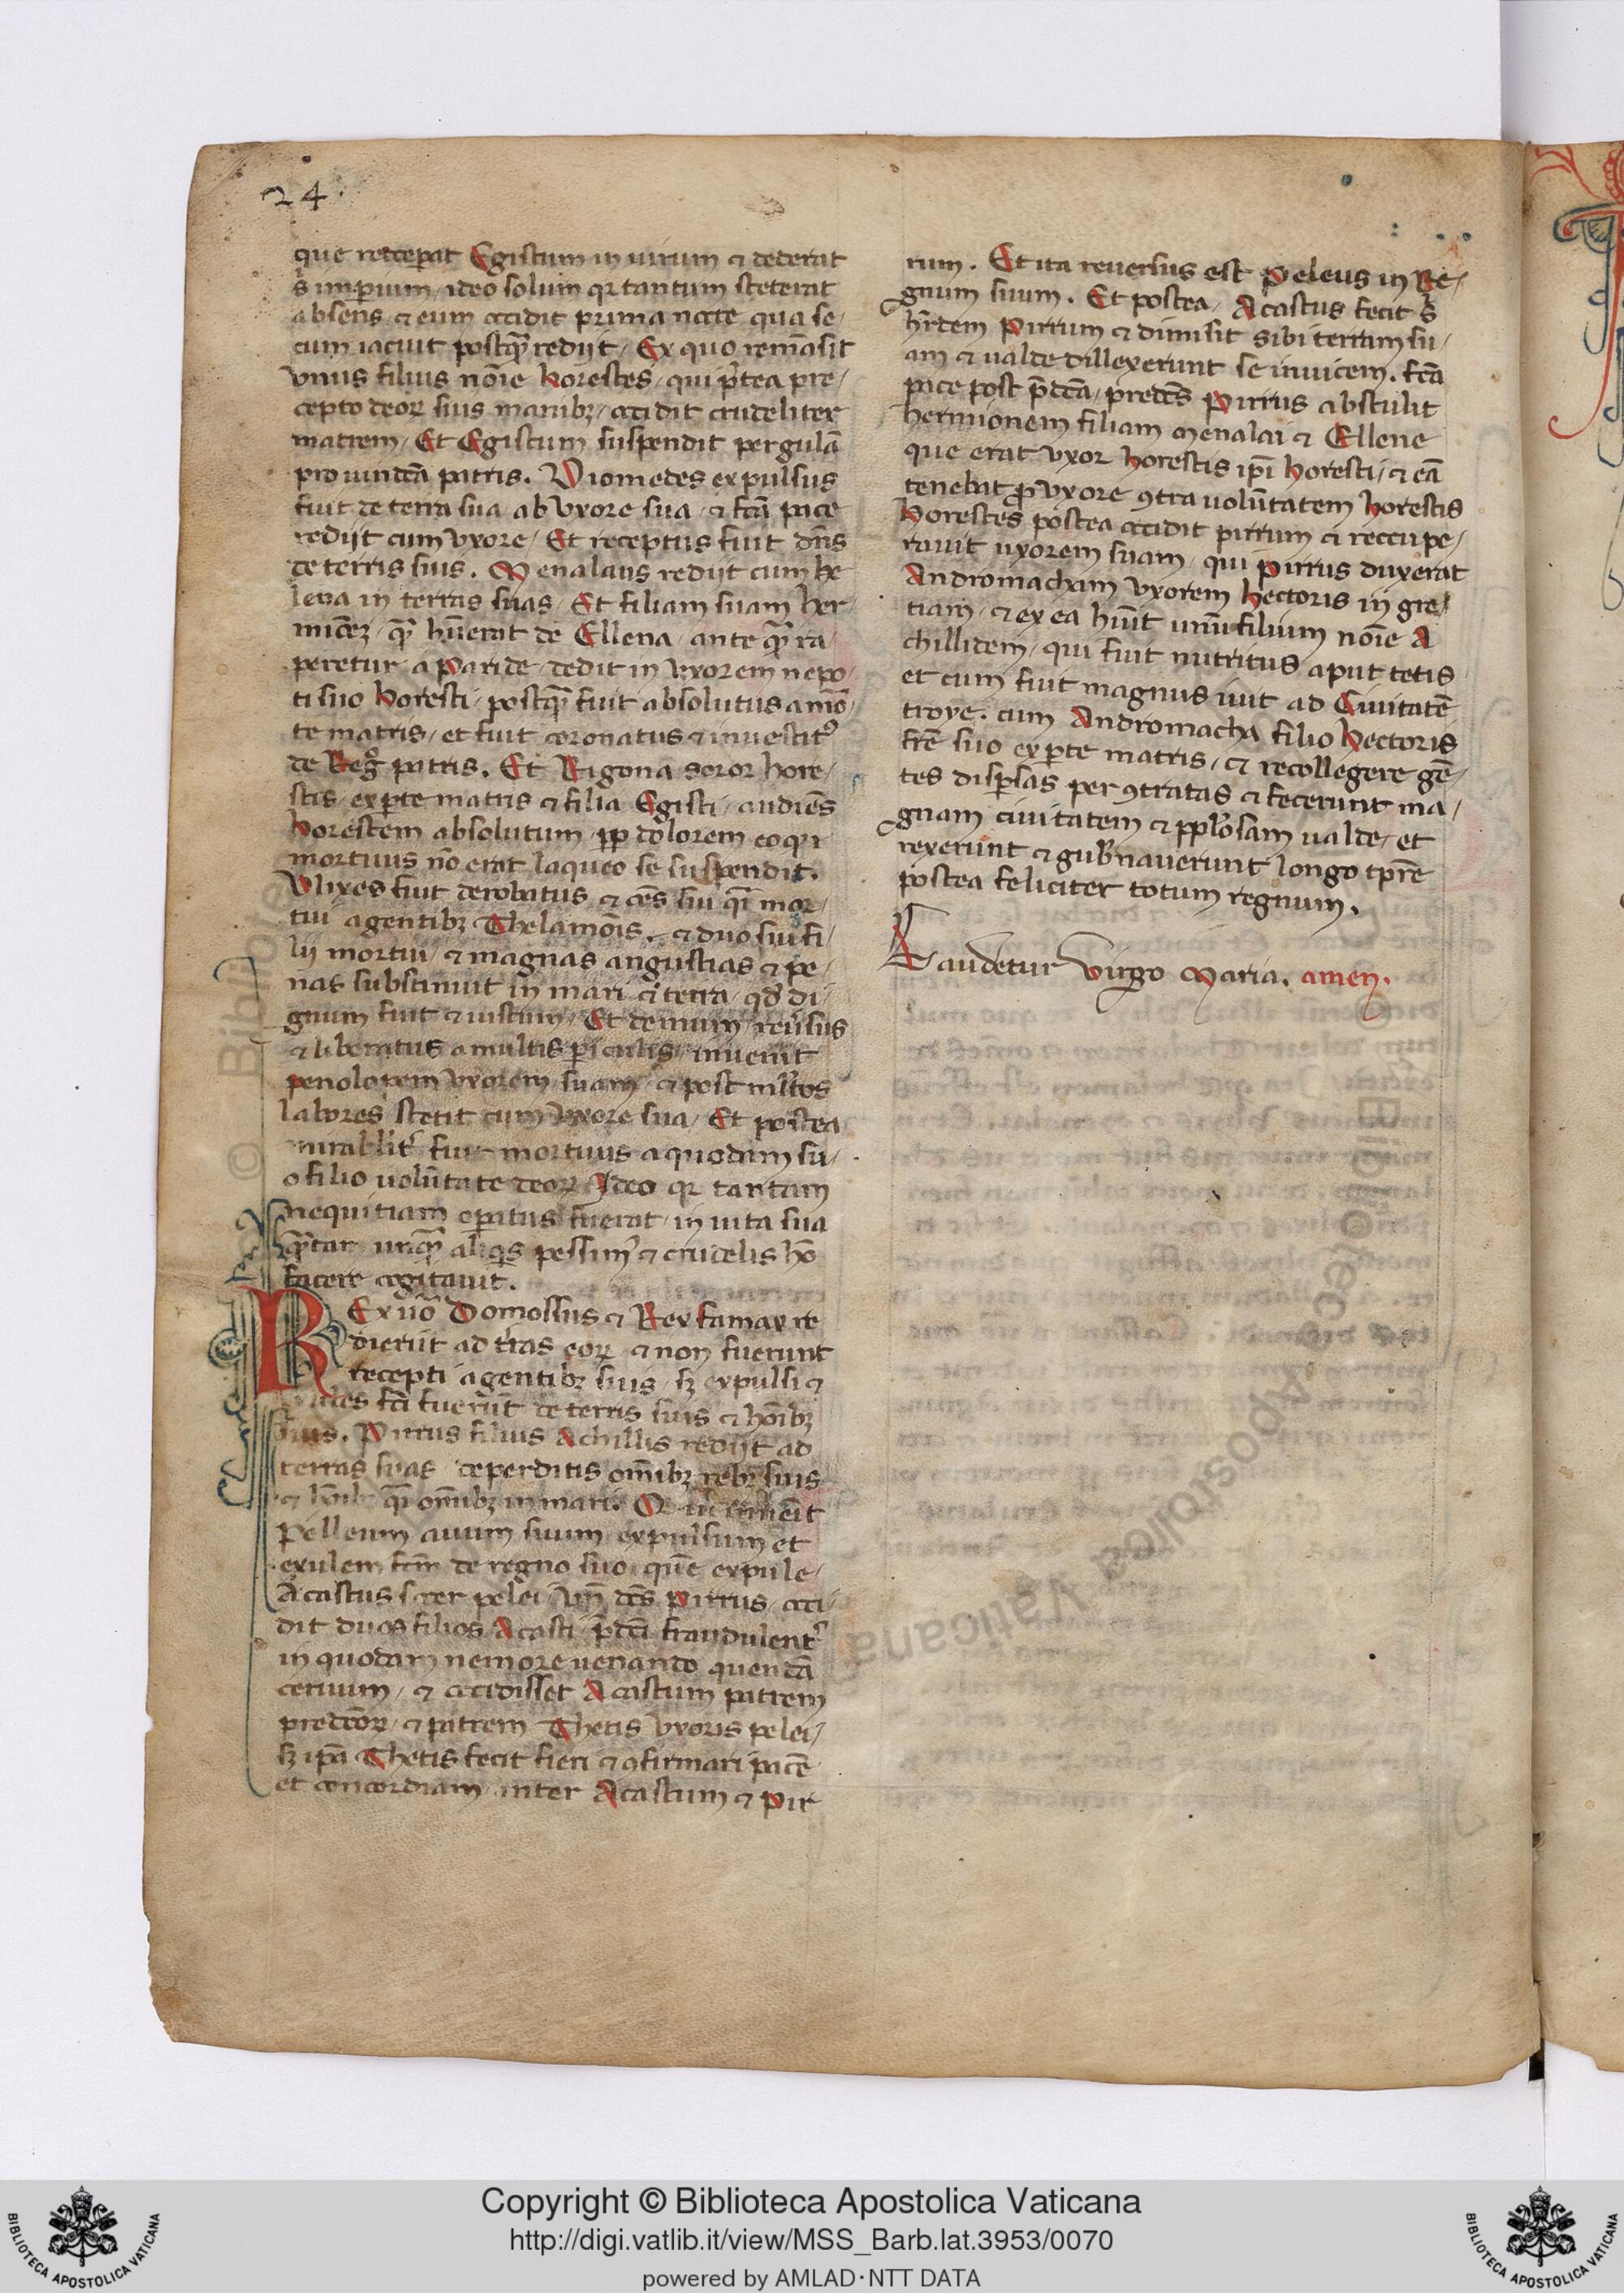 24.
que recceperat Egistum in uirum ⁊ dederat
s̉ imperium, ideo solum qr tantum steterat
absens, ⁊ eum occidit prima nocte qua se-
cum iacuit postqᷓ redijt, Ex quo remāsit
vnus filius noīe horestes, qui p̓tea pre-
cepto deoꝝ suis manibꝫ, occidit crudeliter
matrem, Et Egistum suspendit per gulā
pro uindcā patris. Diomedes expulsus
fuit de terra sua ab vxore sua, ⁊ fcā pace
redijt cum vxore, Et receptus fuit dn̄s
de terris suis. Menalaus redijt cum he
lena in terras suas, Et filiam suam her-
quā hūerat de Ellena, ante qᷓ ra-
peretur a Paride, dedit in vxorem nepo-
ti suo horesti, postqᷓ fuit absolutus a mor-
te matris, et fuit coronatus ⁊ inuestit᷒
de Regº patris. Et Rigona soror hore-
stis, ex pte matris ⁊ filia Egisti, audiēs
horestem absolutum, ꝓp dolorem eo qr
mortuus nō erat laqueo se suspendit.
Vlixes fuit derobatus, ⁊ oēs sui qᷓi mor-
tui agentibꝫ Thelamōis, ⁊ duo sui fi-
lij mortui, ⁊ magnas angustias ⁊ pe-
nas substinuit in mari ⁊ terra, qd̄ di-
gnum fuit ⁊ iustum, Et demum reūsus
⁊ liberatus a multis periculis, inuenit
penolopem vxorem suam, ⁊ post ml̄tos
labores stetit cum vxore sua, Et postea
mirabilit᷒ fuit mortuus a quodam su-
o filio volūtate deoꝝ Ideo qr tantam
nequitiam operatus fuerat, in uita sua
unqᷓ aliqis pessim᷒ ⁊ crudelis hō
facere cogitauit.
REx uō Domossus ⁊ Rex famax re
dierūt ad t̓ras eoꝝ, ⁊ non fuerunt
recepti a gentibꝫ suis, sꝫ expulsi ⁊
fcī fuerūt de terris suis ⁊ hoībꝫ
suis. Pirrus filius Achillis redijt ad
terras suas, deperditis omībꝫ rebꝫ suis
⁊ qᷓi omībꝫ in mari. inuēit
Pelleum auum suum expulsum et
exulem fcm̄ de regno suo, quē expule-
Acastus socer pelei, Vn̄ dcs̄ Pirrus, occi-
dit duos filios Acasti p̄dcī fraudulent᷒
in quodam nemore uenando quendā
ceruum, ⁊ occidisset Acastum patrem
predcōꝝ, ⁊ patrem Thetis vxoris pelei,
sꝫ ipā Thetis fecit fieri ⁊ ꝯfirmari pacē
et concordiam, inter Acastum ⁊ Pir
rum. Et ita reuersus est Peleus in Re-
gnum suum. Et postea, Acastus fecit s̉
hr̄dem Pirrum ⁊ dimisit sibi terram su-
am ⁊ ualde dillexerunt se inuicem. fcā
pace post p̄dcā, predcs̄ Pirrus abstulit
hermionem filiam Menalai ⁊ Ellene
que erat vxor horestis ipī horesti, ⁊ eā
tenebat ꝓ vxore ꝯtra volūtatem horestis
Horestes postea occidit pirrum ⁊ reccupe-
rauit uxorem suam, qui pirrus duxerat
Andromacham vxorem hectoris in gre-
tiam, ⁊ ex ea hūit unū filium noīe A
chillidem, qui fuit nutritus aput tetis
et cum fuit magnus iuit ad Ciuitatē
troye. cum Andromacha filio hectoris
frē suo ex pte matris, ⁊ recollegere gē-
tes dispersas per ꝯtratas ⁊ fecerunt ma-
gnam ciuitatem ⁊ ppl̄osam ualde, et
rexerunt ⁊ gub̄nauerunt longo tp̄re
postea feliciter totum regnum.
Laudetur Virgo Maria. amen.
© Biblioteca Apostolica Vaticana
Copyright © Biblioteca Apostolica Vaticana
http://digi.vatlib.it/view/MSS_Barb.lat.3953/0070
powered by AMLAD·NTT DATA
BIBLIOTECA APOSTOLICA VATICANA
BIBLIOTECA APOSTOLICA VATICANA